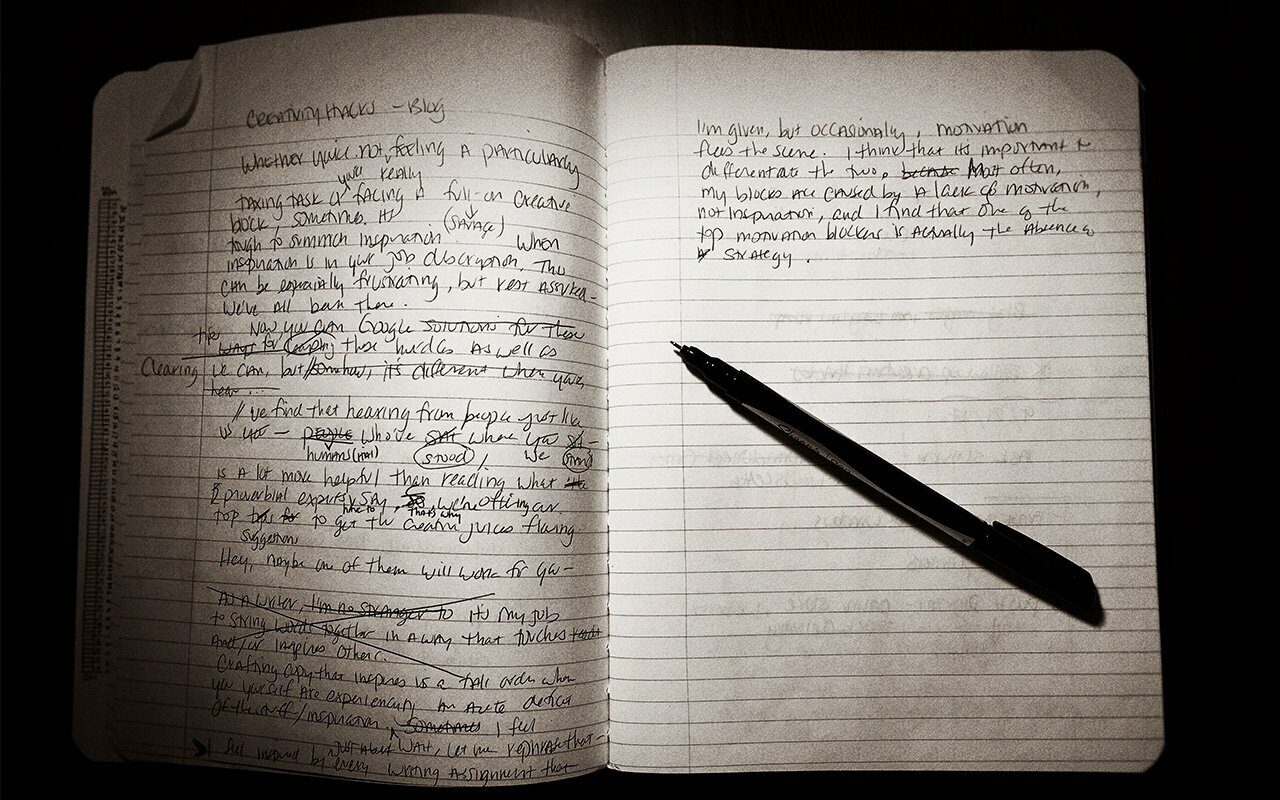 CREATIVITY HACKS - Blog
Whether you're not feeling A particularly
you're really
taxing task or facing A full-on creative
block, sometimes it's (SAVAGE)
tough to summon inspiration when
inspiration is in your job description. This
can be especially frustrating, but rest assured -
we've all been there.
Now you can Google solutions for these
tips
ways for leaping these hurdles As well as
Clearing we can, but somehow, it's different when you've
hear ...
We find that hearing from people just like
us you - people who've sat where you sit -
humans (not) stood, we stand
is A lot more helpful than reading what the
proverbial experts say, so we're offering our
how to that's why
top tips for to get the creative juices flowing.
suggestions
Hey, maybe one of them will work for you -
As A writer, I'm no stranger to it's my job
to string words together in A way that touches
And/or inspires others.
Crafting copy that inspires is A tall order when
you yourself Are experiencing An Acute deficit
of the stuff/inspiration, sometimes I feel
just About Wait, let me rephrase that -
I feel inspired by every writing Assignment that
I'm given, but occasionally, motivation
flees the scene. I think that it's important to
differentiate the two, because Most often,
my blocks Are caused by A lack of motivation,
not inspiration, and I find that one of the
top motivation blockers is Actually the Absence of
strategy.